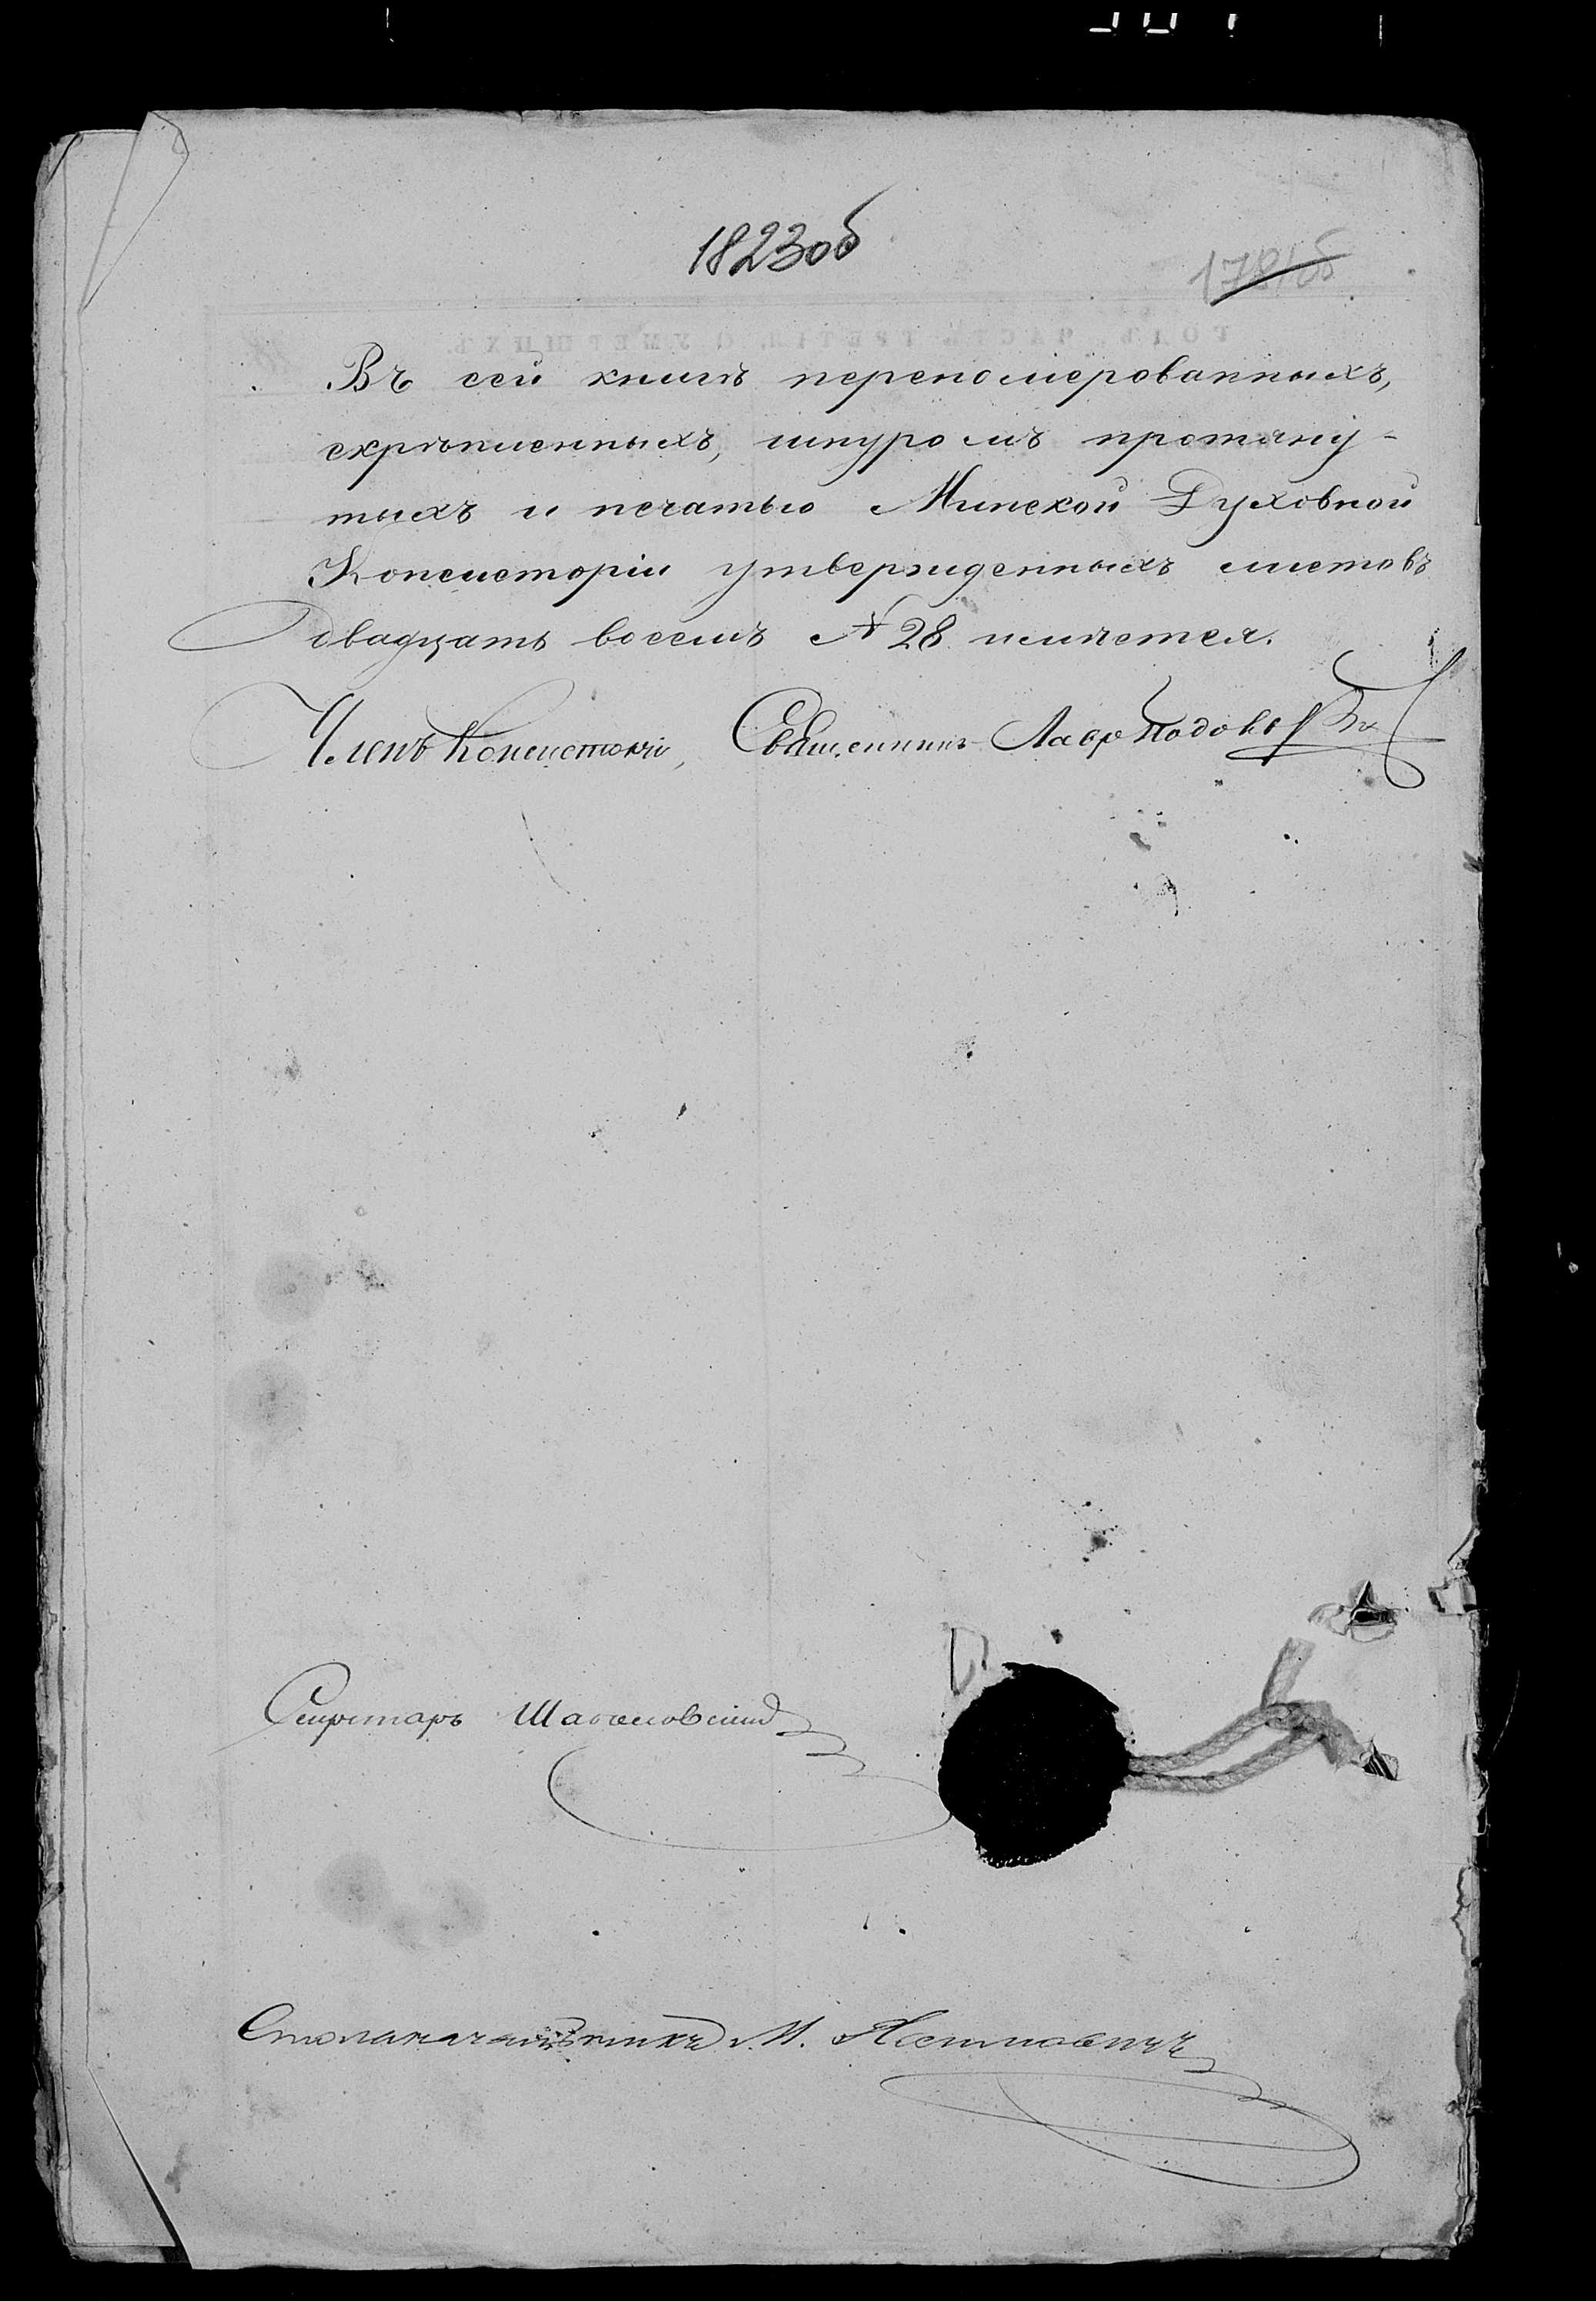 1823об
178об
Въ сей книгѣ перепомерованныхъ,
скрѣпленныхъ, шнуромъ протяну-
тыхъ и печатью Минской Духовной
Консисторіи утвержденныхъ листовъ
двадцать восемь № 28 имѣется.
Членъ Консисторіи, Священникъ Лавр
Секретарь
Столоначальникъ М.